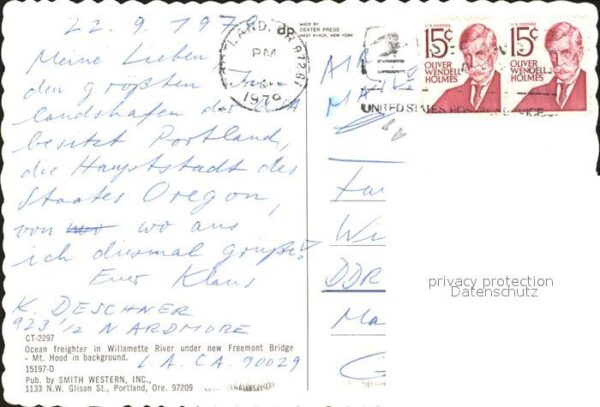 22. 9. 1979
Meine Lieben
den größten
landshafen der USA
besitzt Portland,
die Hauptstadt des
Staates Oregon,
von wo aus
ich diesmal grüße!
Euer Klaus
K. DESCHNER
923 1/2 N ARDMORE
L. A. CA. 90029
CT-2297
Ocean freighter in Willamette River under new Freemont Bridge
- Mt. Hood in background.
15197-D
Pub. by SMITH WESTERN, INC.,
1133 N.W. Glisan St., Portland, Ore. 97209
MADE BY
DEXTER PRESS
WEST NYACK, NEW YORK
LAND, OR 972
PM
1979
AIR
MAIL
U.S. POSTAGE
15c
OLIVER
WENDELL
HOLMES
U.S. POSTAGE
15c
OLIVER
WENDELL
HOLMES
UNITED STATES POSTAL SERVICE
Fa
Wi
DDR
Ma
G
privacy protection
Datenschutz